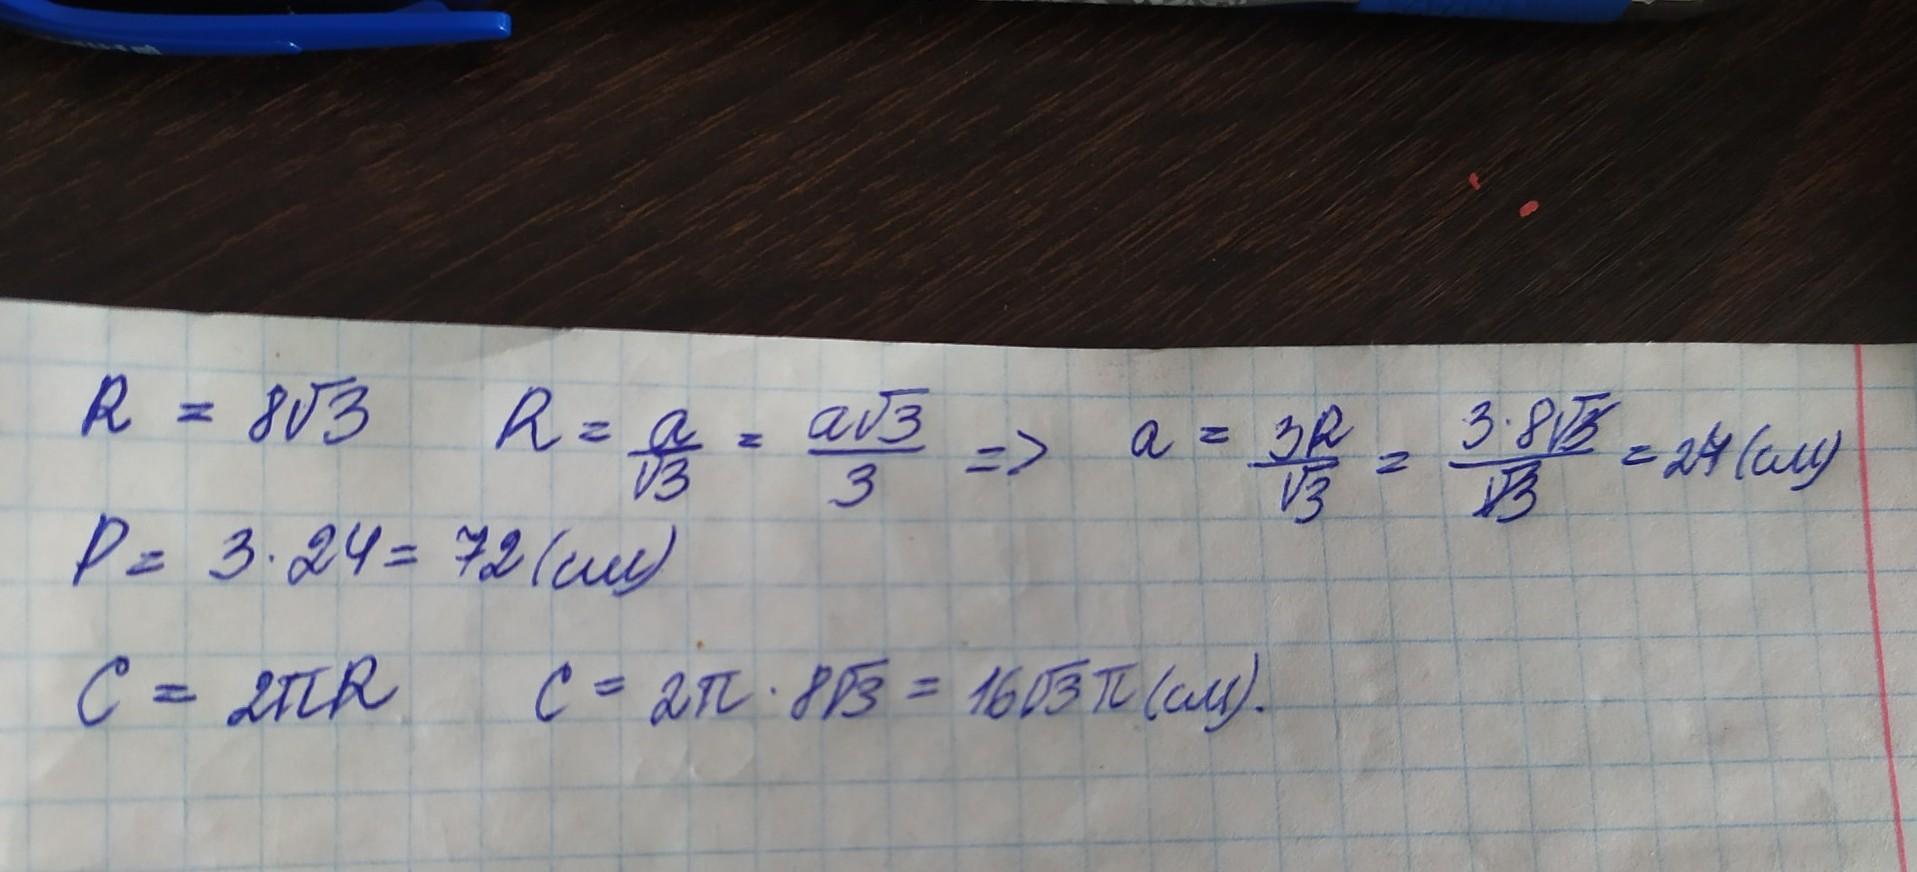 R = 8√3 R = a/√3 = a√3/3 => a = 3R/√3 = 3·8√3/√3 = 24 (см)
P = 3·24 = 72 (см)
C = 2πR C = 2π·8√3 = 16√3π (см).